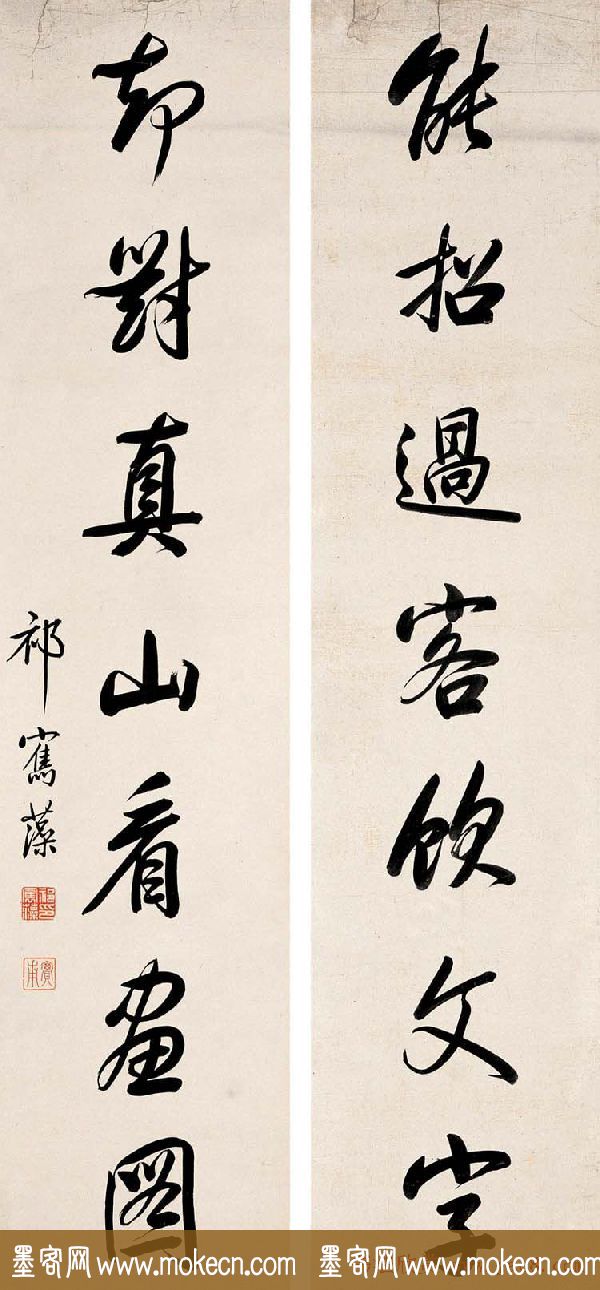 能招過客飲文字
却對真山看畫圖
祁寯藻
祁印寯藻
實甫
墨客网 www.mokecn.com
墨客网 www.mokecn.com